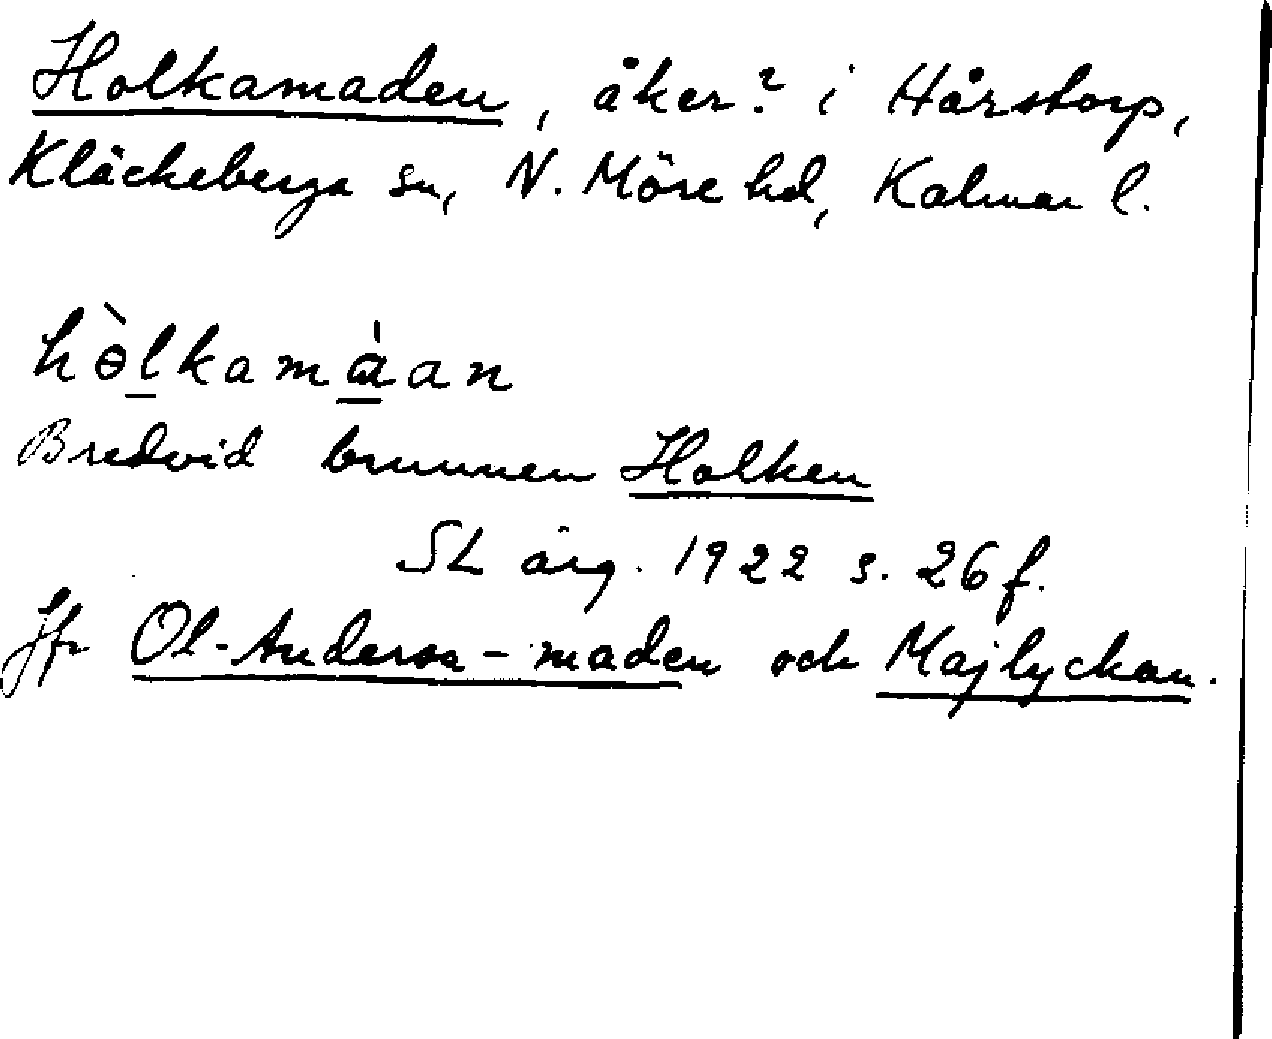 Holkamaden, åker? i Hårstorp,
Kläckeberga sn, N. Möre hd, Kalmar l.
hɵ̀lkamàan
Bredvid brunnen Holken
SL årg. 1922 s. 26 f.
Jfr Ol-Andersa-maden och Majlyckan.